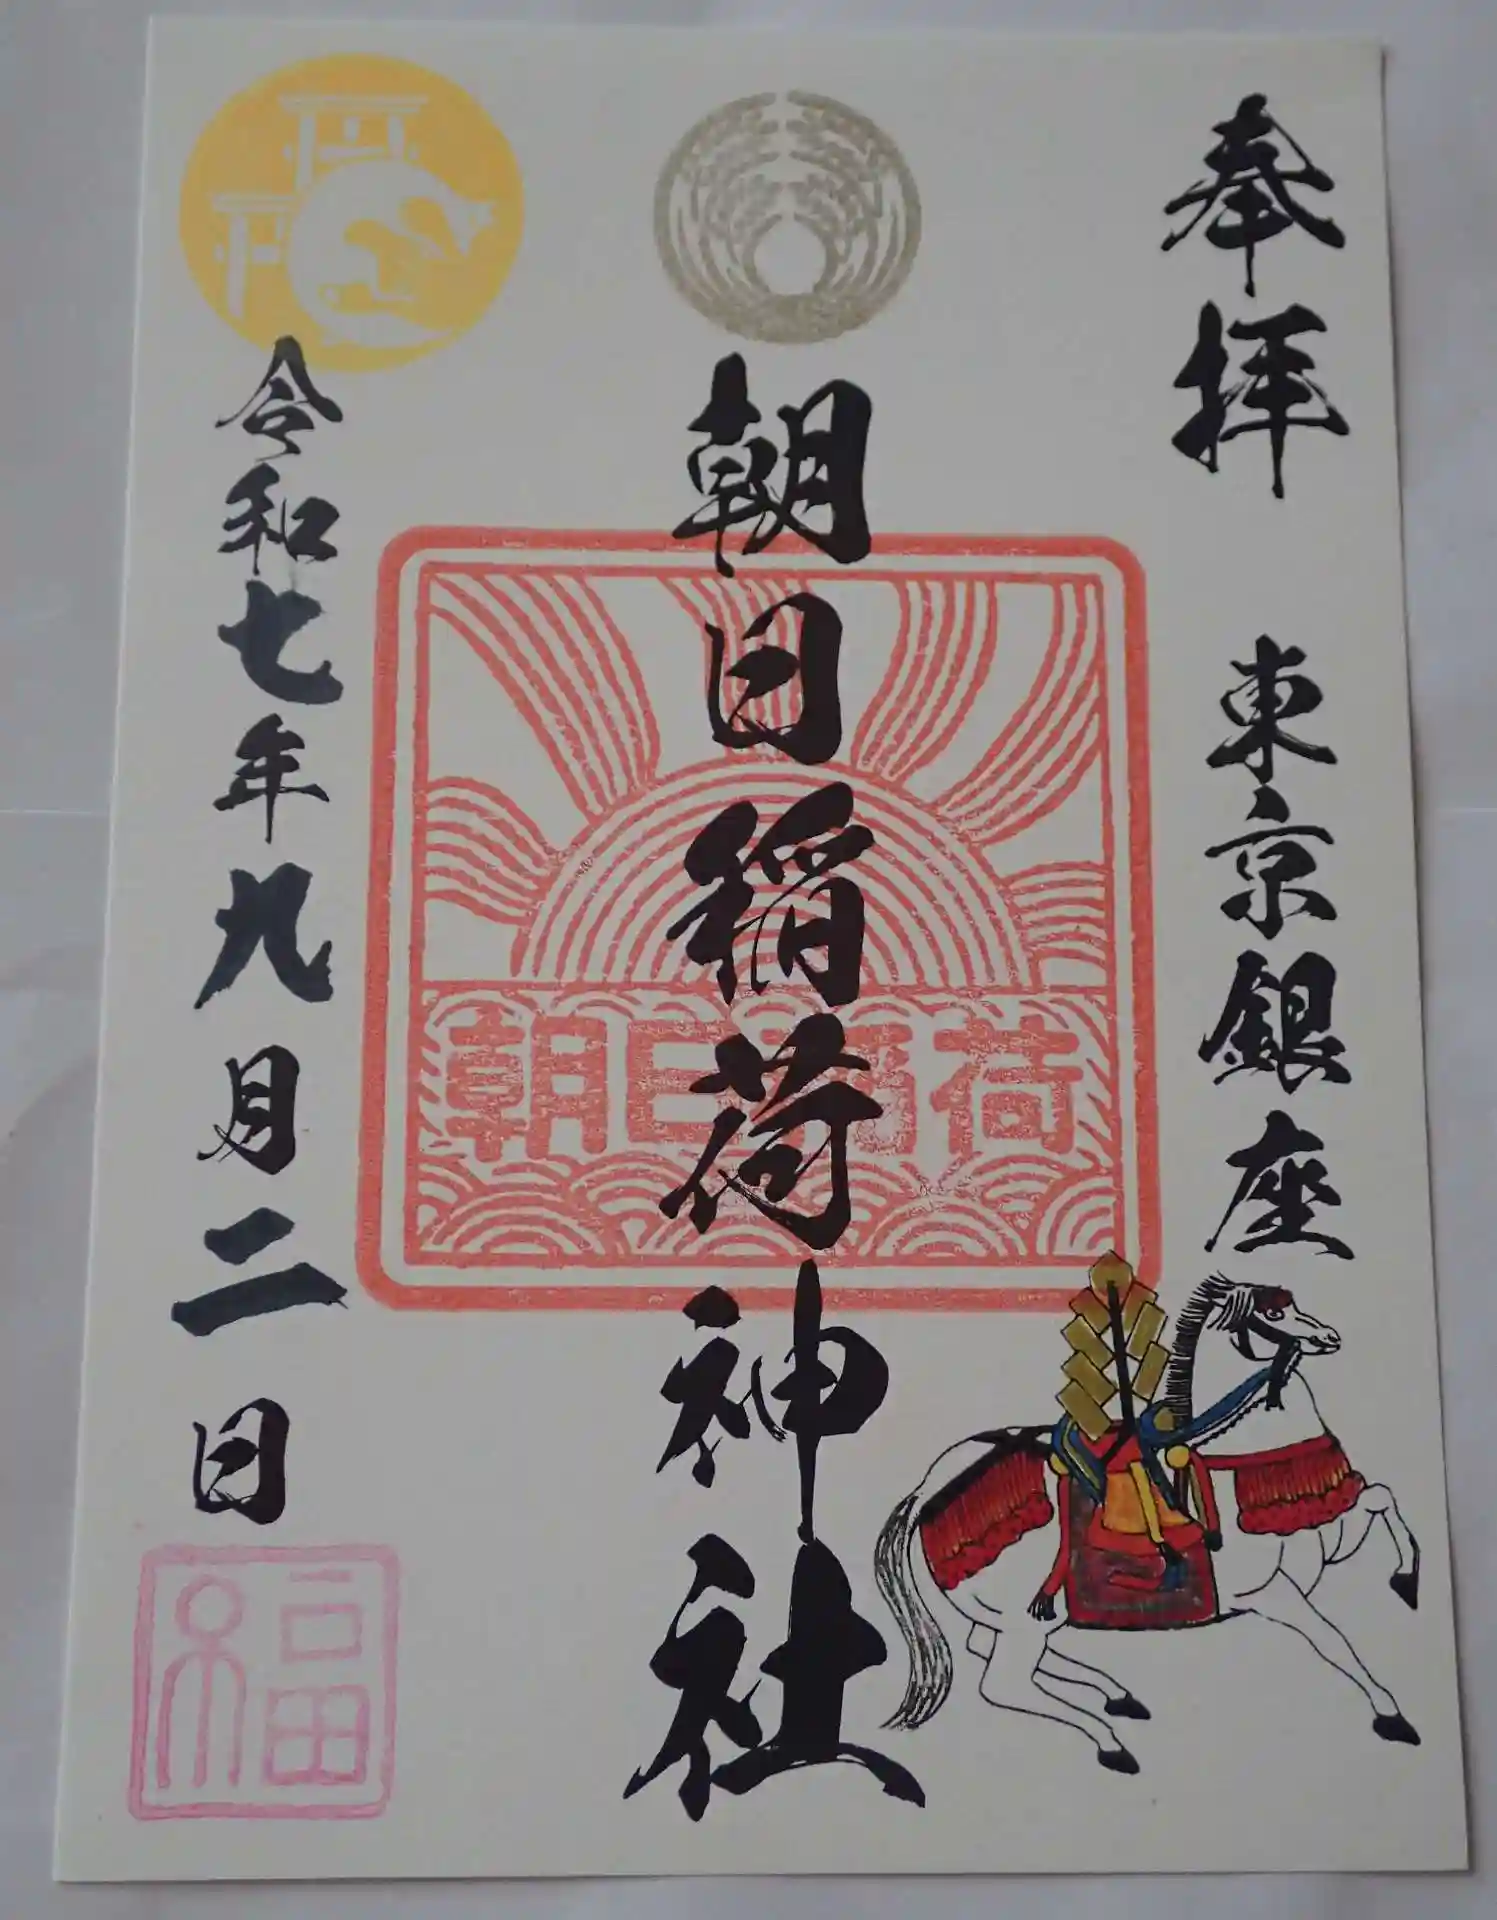 奉拝
東京銀座
朝日稲荷神社
朝日稲荷
令和七年九月二日
福